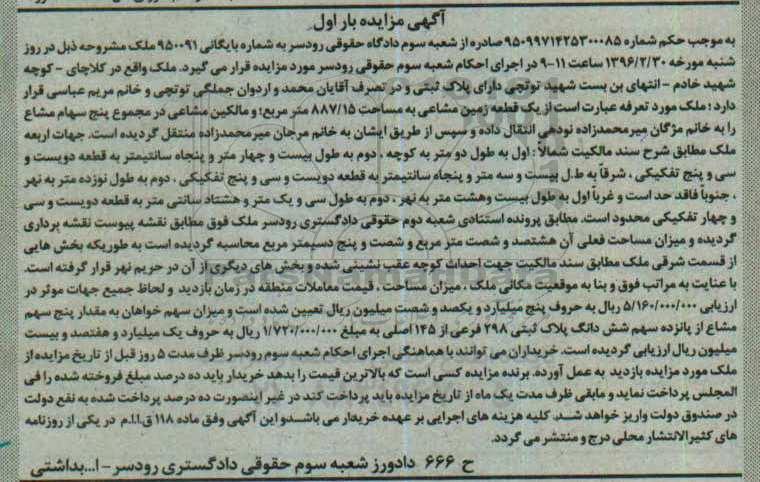 آگهی مزایده بار اول
به موجب حکم شماره ۹۵۰۹۹۷۱۴۲۵۳۰۰۰۸۵ صادره از شعبه سوم دادگاه حقوقی رودسر به شماره بایگانی ۹۵۰۰۹۱ ملک مشروحه ذیل در روز
شنبه مورخه ۱۳۹۶/۲/۳۰ ساعت ۱۱-۹ در اجرای احکام شعبه سوم حقوقی رودسر مورد مزایده قرار می گیرد. ملک واقع در کلاچای - کوچه
شهید خادم - انتهای بن بست شهید توتچی دارای پلاک ثبتی و در تصرف آقایان محمد و اردوان جملگی توتچی و خانم مریم عباسی قرار
دارد؛ ملک مورد تعرفه عبارت است از یک قطعه زمین مشاعی به مساحت ۸۸۷/۱۵ متر مربع؛ و مالکین مشاعی در مجموع پنج سهام مشاع
را به خانم مژگان میرمحمدزاده نودهی انتقال داده و سپس از طریق ایشان به خانم مرجان میرمحمدزاده منتقل گردیده است. جهات اربعه
ملک مطابق شرح سند مالکیت شمالاً: اول به طول دو متر به کوچه، دوم به طول بیست و چهار متر و پنجاه سانتیمتر به قطعه دویست و
سی و پنج تفکیکی، شرقاً به طول بیست و سه متر و پنجاه سانتیمتر به قطعه دویست و سی و پنج تفکیکی. دوم به طول نوزده متر به نهر
، جنوباً فاقد حد است و غرباً اول به طول بیست وهشت متر به نهر، دوم به طول سی و یک متر و هشتاد سانتی متر به قطعه دویست و سی
و چهار تفکیکی محدود است. مطابق پرونده استنادی شعبه دوم حقوقی دادگستری رودسر ملک فوق مطابق نقشه پیوست نقشه برداری
گردیده و میزان مساحت فعلی آن هشتصد و شصت متر مربع و شصت و پنج دسیمتر مربع محاسبه گردیده است به طوریکه بخش هایی
از قسمت شرقی ملک مطابق سند مالکیت جهت احداث کوچه عقب نشینی شده و بخش های دیگری از آن در حریم نهر قرار گرفته است.
با عنایت به مراتب فوق و بنا به موقعیت مکانی ملک، میزان مساحت، قیمت معاملات منطقه در زمان بازدید و لحاظ جمیع جهات موثر در
ارزیابی ۵/۱۶۰/۰۰۰/۰۰۰ ریال به حروف پنج میلیارد و یکصد و شصت میلیون ریال تعیین شده است و میزان سهم خواهان به مقدار پنج سهم
مشاع از پانزده سهم شش دانگ پلاک ثبتی ۲۹۸ فرعی از ۱۴۵ اصلی به مبلغ ۱/۷۲۰/۰۰۰/۰۰۰ ریال به حروف یک میلیارد و هفتصد و بیست
میلیون ریال ارزیابی گردیده است. خریداران می توانند با هماهنگی اجرای احکام شعبه سوم رودسر ظرف مدت ۵ روز قبل از تاریخ مزایده از
ملک مورد مزایده بازدید به عمل آورده. برنده مزایده کسی است که بالاترین قیمت را بدهد خریدار باید ده درصد مبلغ فروخته شده را فی
المجلس پرداخت نماید و مابقی ظرف مدت یک ماه از تاریخ مزایده باید پرداخت کند در غیر اینصورت ده درصد پرداخت شده به نفع دولت
در صندوق دولت واریز خواهد شد. کلیه هزینه های اجرایی بر عهده خریدار می باشدو این آگهی وفق ماده ۱۱۸ ق.ا.ا.م در یکی از روزنامه
های کثیرالانتشار محلی درج و منتشر می گردد.
ح ۶۶۶ دادورز شعبه سوم حقوقی دادگستری رودسر - ا...بداشتی